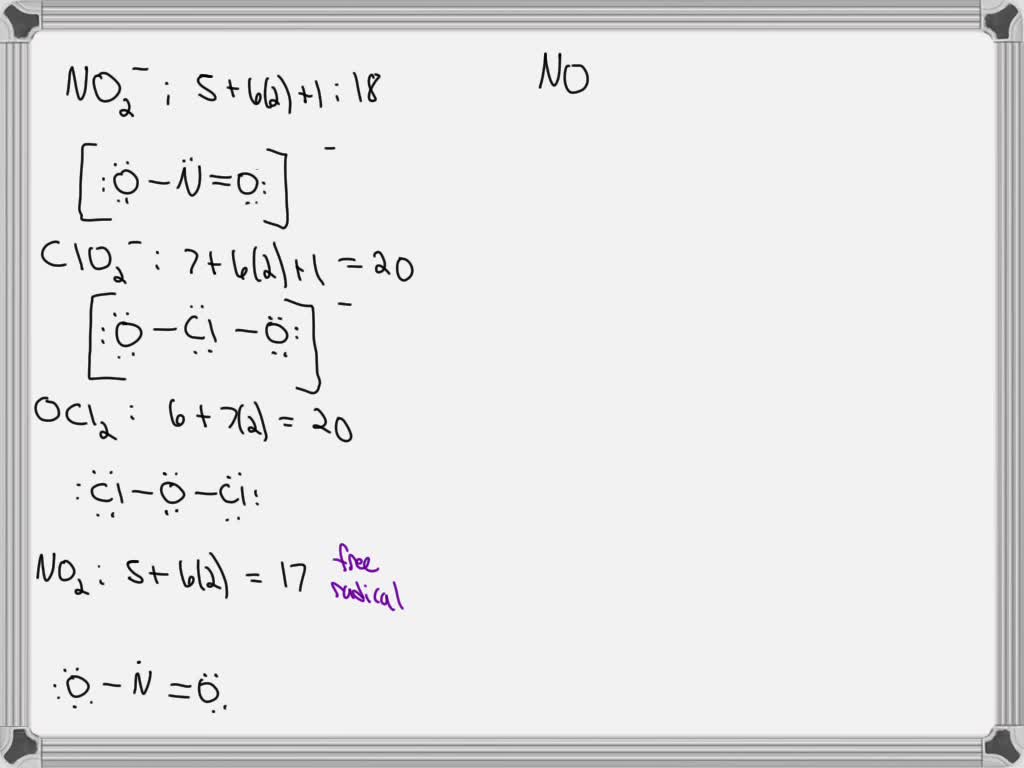 NO₂⁻ : 5 + 6(2) + 1 : 18
NO
[:Ö – N̈ = O:]⁻
ClO₂⁻ : 7 + 6(2) + 1 = 20
[:Ö – C̈l – Ö:]⁻
OCl₂ : 6 + 7(2) = 20
:C̈l – Ö – C̈l:
NO₂ : 5 + 6(2) = 17 free radical
:Ö – Ṅ = Ö